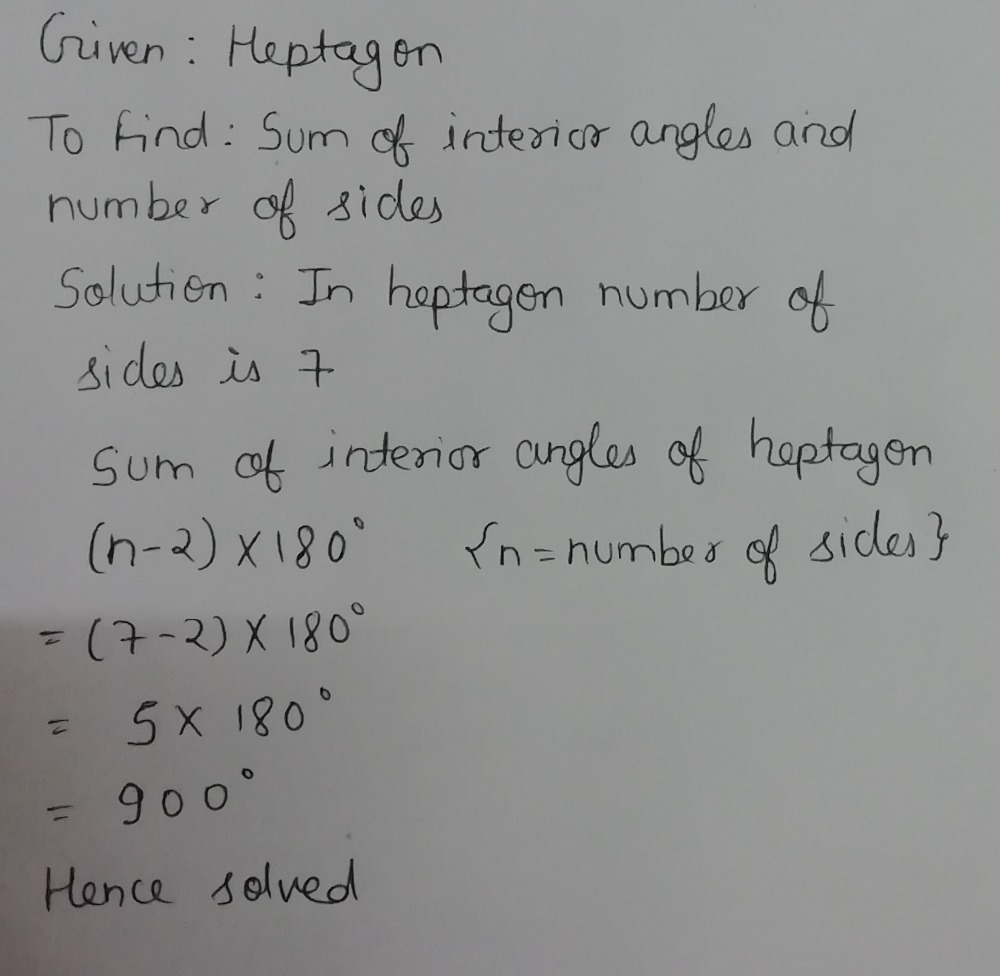 Given : Heptagon
To find : Sum of interior angles and
number of sides
Solution : In heptagon number of
sides is 7
Sum of interior angles of heptagon
(n-2) × 180° {n = number of sides}
= (7-2) × 180°
= 5 × 180°
= 900°
Hence solved